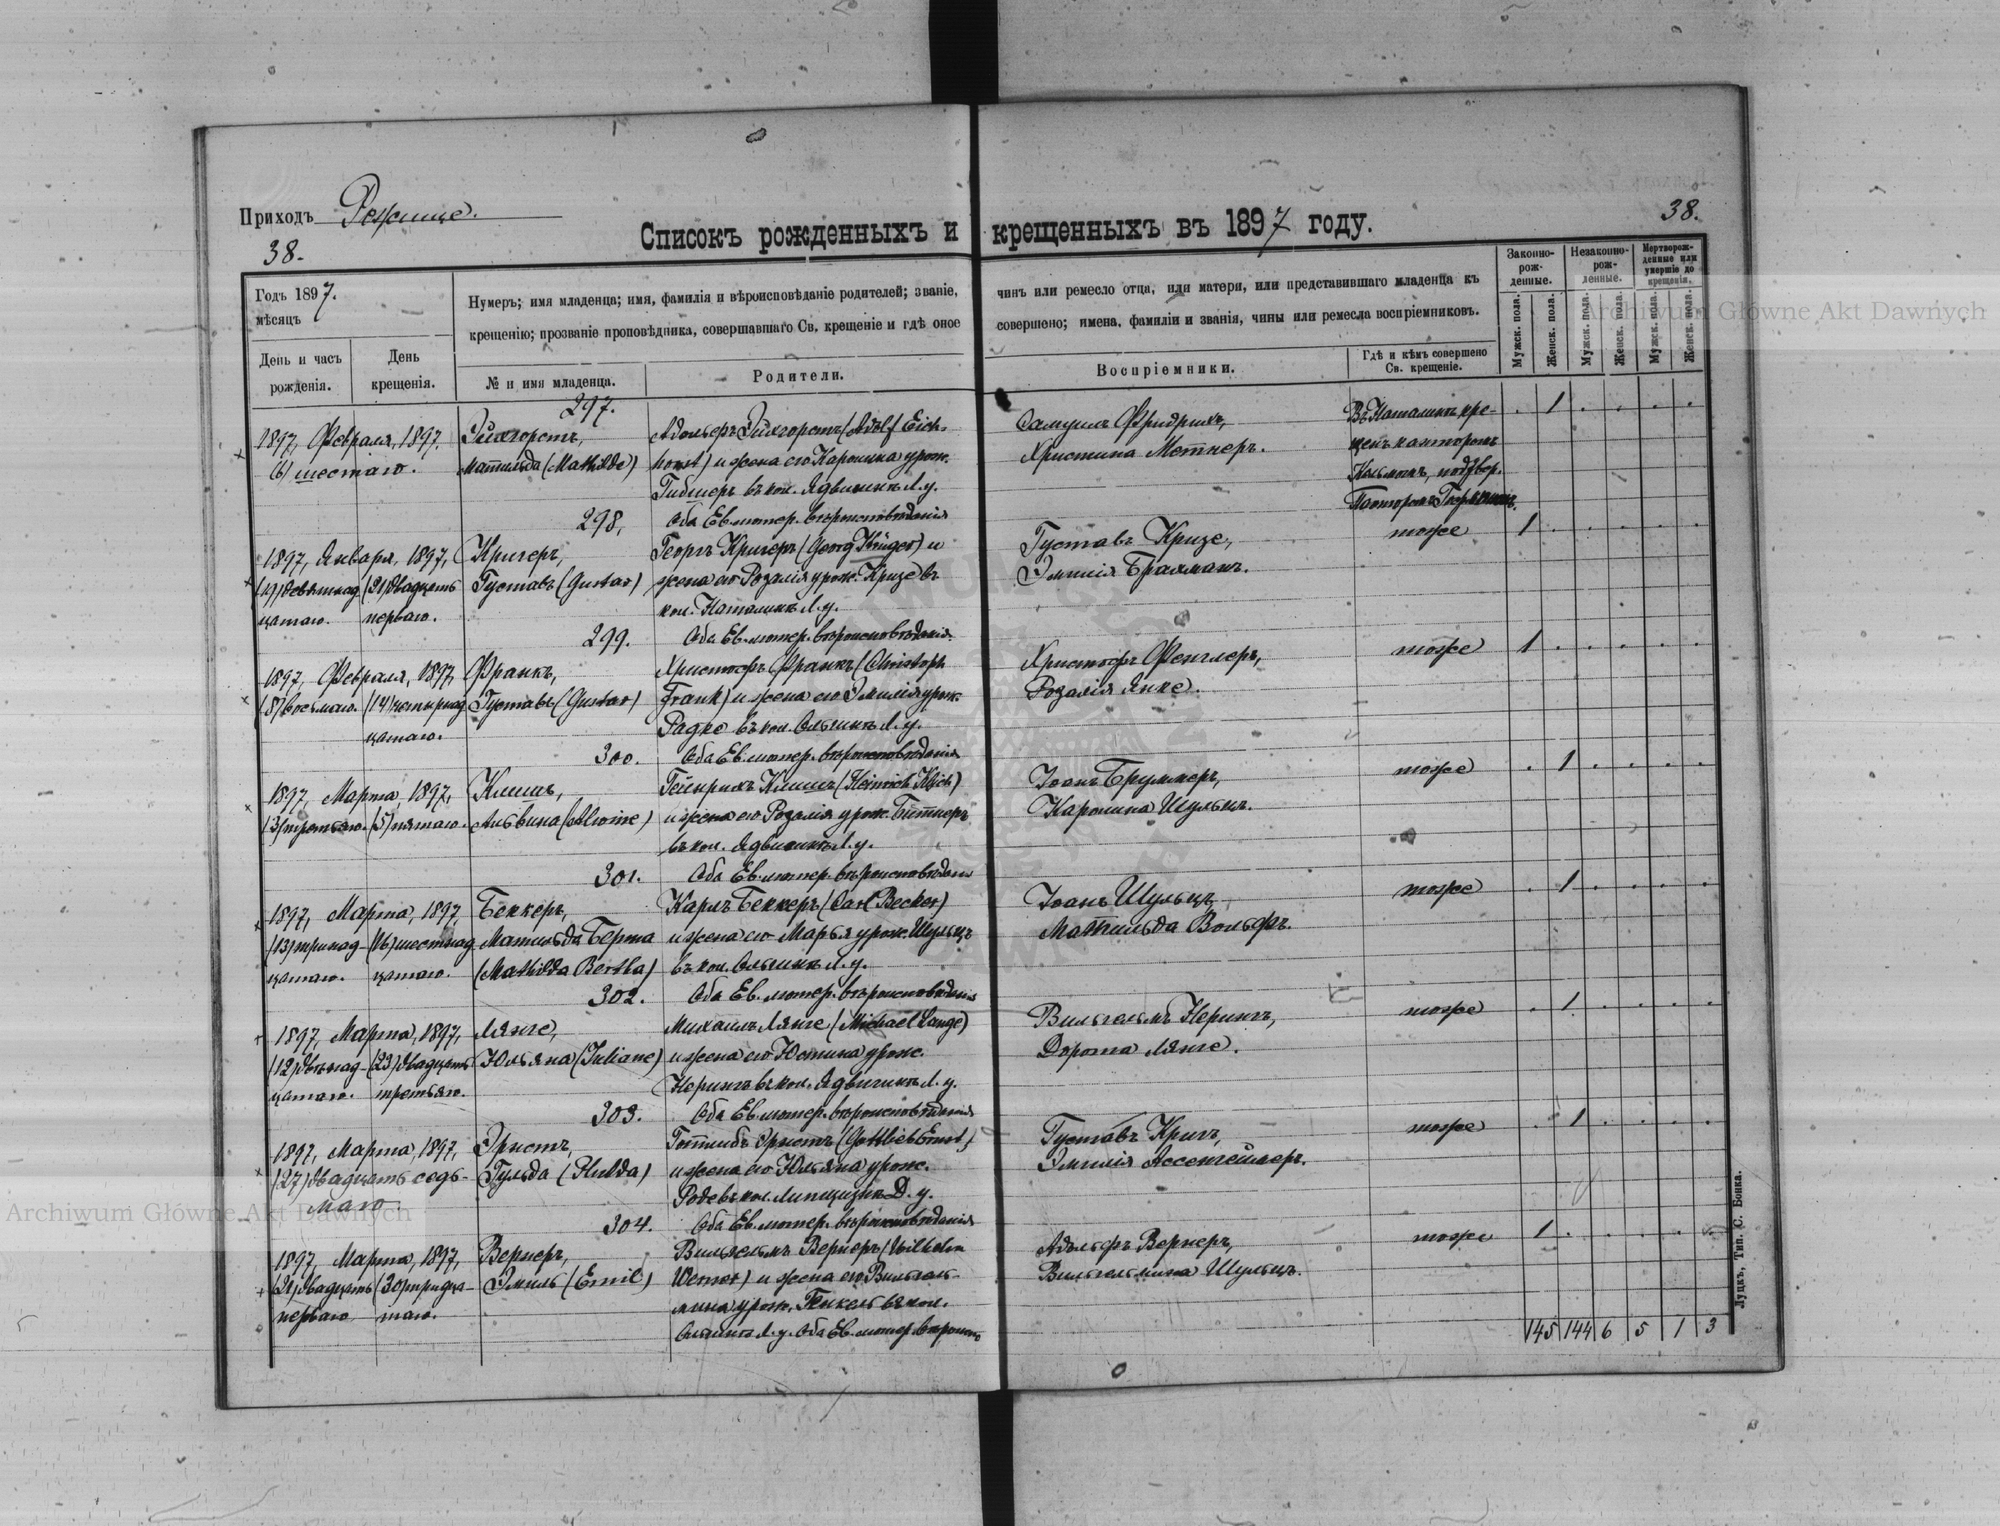 Приходъ Рожище.
38.
38.
Списокъ рожденныхъ и крещенныхъ въ 1897 году.
Годъ 1897.
мѣсяцъ
Нумеръ; имя младенца; имя, фамилія и вѣроисповѣданіе родителей; званіе,
крещенію; прозваніе проповѣдника, совершавшаго Св. крещеніе и гдѣ оное
чинъ или ремесло отца, или матеря, или представившаго младенца къ
совершено; имена, фамиліи и званія, чины или ремесла воспріемниковъ.
Законно-
рож-
денные.
Незаконно-
рож-
денные.
Мертворож-
денные или
умершіе до
крещенія.
День и часъ
рожденія.
День
крещенія.
№ и имя младенца.
Родители.
Воспріемники.
Гдѣ и кѣмъ совершено
Св. крещеніе.
Мужск. пола.
Женск. пола.
Мужск. пола.
Женск. пола.
Мужск. пола.
Женск. пола.
297.
1897, Февраля, 1897.
(6) шестаго.
Эйхгорстъ,
Матильда (Mathilde)
Адольфъ Эйхгорстъ (Adolf Eich-
horst) и жена его Каролина урож.
въ кол. Ядвигинъ Л. у.
Оба Ев. лютер. вѣроисповѣданія
Самуилъ Фридрихъ,
Христина Метнеръ.
1
298.
1897, Января, 1897,
(19) девятнад-
цатаго.
(21) двадцать
перваго.
Кригеръ,
Густавъ (Gustav)
Георгъ Кригеръ (Georg Krüger) и
жена его Розалія урож. Кризе въ
кол. Наталинъ Л. у.
Оба Ев. лютер. вѣроисповѣданія.
Густавъ Кризе,
Эмилія Брахманъ.
тоже
1
299.
1897, Февраля, 1897,
(8) восьмаго.
(14) четырнад-
цатаго.
Франкъ,
Густавъ (Gustav)
Христофъ Франкъ (Christoph
Frank) и жена его Эмилія урож.
Радке въ кол. Ольгинъ Л. у.
Оба Ев. лютер. вѣроисповѣданія
Христофъ Фенглеръ,
Розалія Янке.
тоже
1
300.
1897, Марта, 1897,
(3) третьяго.
(5) пятаго.
Альвина (Alwine)
и жена его Розалія урож. Битнеръ
въ кол. Ядвигинъ Л. у.
Оба Ев. лютер. вѣроисповѣданія
Іоанъ Бруммеръ,
Каролина Шульцъ.
тоже
1
301.
1897, Марта, 1897,
(13) тринад-
цатаго.
(16) шестнад-
цатаго.
Беккеръ,
Матильда Берта
(Mathilda Bertha)
Карлъ Беккеръ (Carl Becker)
и жена его Марья урож. Шульцъ
въ кол. Ольгинъ Л. у.
Оба Ев. лютер. вѣроисповѣданія
Іоанъ Шульцъ,
Матильда Вольфъ.
тоже
1
302.
1897, Марта, 1897,
(12) двѣнад-
цатаго.
(23) двадцать
третьяго.
Лянге,
Юльяна (Juliane)
Михаилъ Лянге (Michael Lange)
и жена его Юстина урож.
Нерингъ въ кол. Ядвигинъ Л. у.
Оба Ев. лютер. вѣроисповѣданія
Вильгельмъ Нерингъ,
Дорота Лянге.
тоже
1
303.
1897, Марта, 1897,
(27) двадцать седь-
маго.
Эрнстъ,
Гульда (Hulda)
Готлибъ Эрнстъ (Gottlieb Ernst)
и жена его Юльяна урож.
Оба Ев. лютер. вѣроисповѣданія
Густавъ Кригъ,
тоже
1
304.
1897, Марта, 1897,
(21) двадцать
перваго
(30) тридца-
таго.
Вернеръ,
Эмиль (Emil)
Вильгельмъ Вернеръ (Wilhelm
Werner) и жена его Вильгель-
мина урож. Генкель въ кол.
Ольгинъ Л. у. Оба Ев. лютер. вѣроиспо
Адольфъ Вернеръ,
Вильгельмина Шульцъ.
тоже
1
145 144 6 5 1 3
Луцкъ, Тип. С. Бонка.
Archiwum Główne Akt Dawnych
Archiwum Główne Akt Dawnych